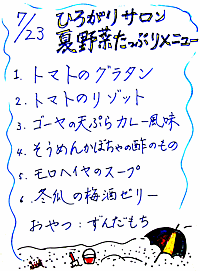 7/23 ひろがりサロン
夏野菜たっぷりメニュー
1. トマトのグラタン
2. トマトのリゾット
3. ゴーヤの天ぷらカレー風味
4. そうめんかぼちゃの酢のもの
5. モロヘイヤのスープ
6. 冬瓜の梅酒ゼリー
おやつ：ずんだもち